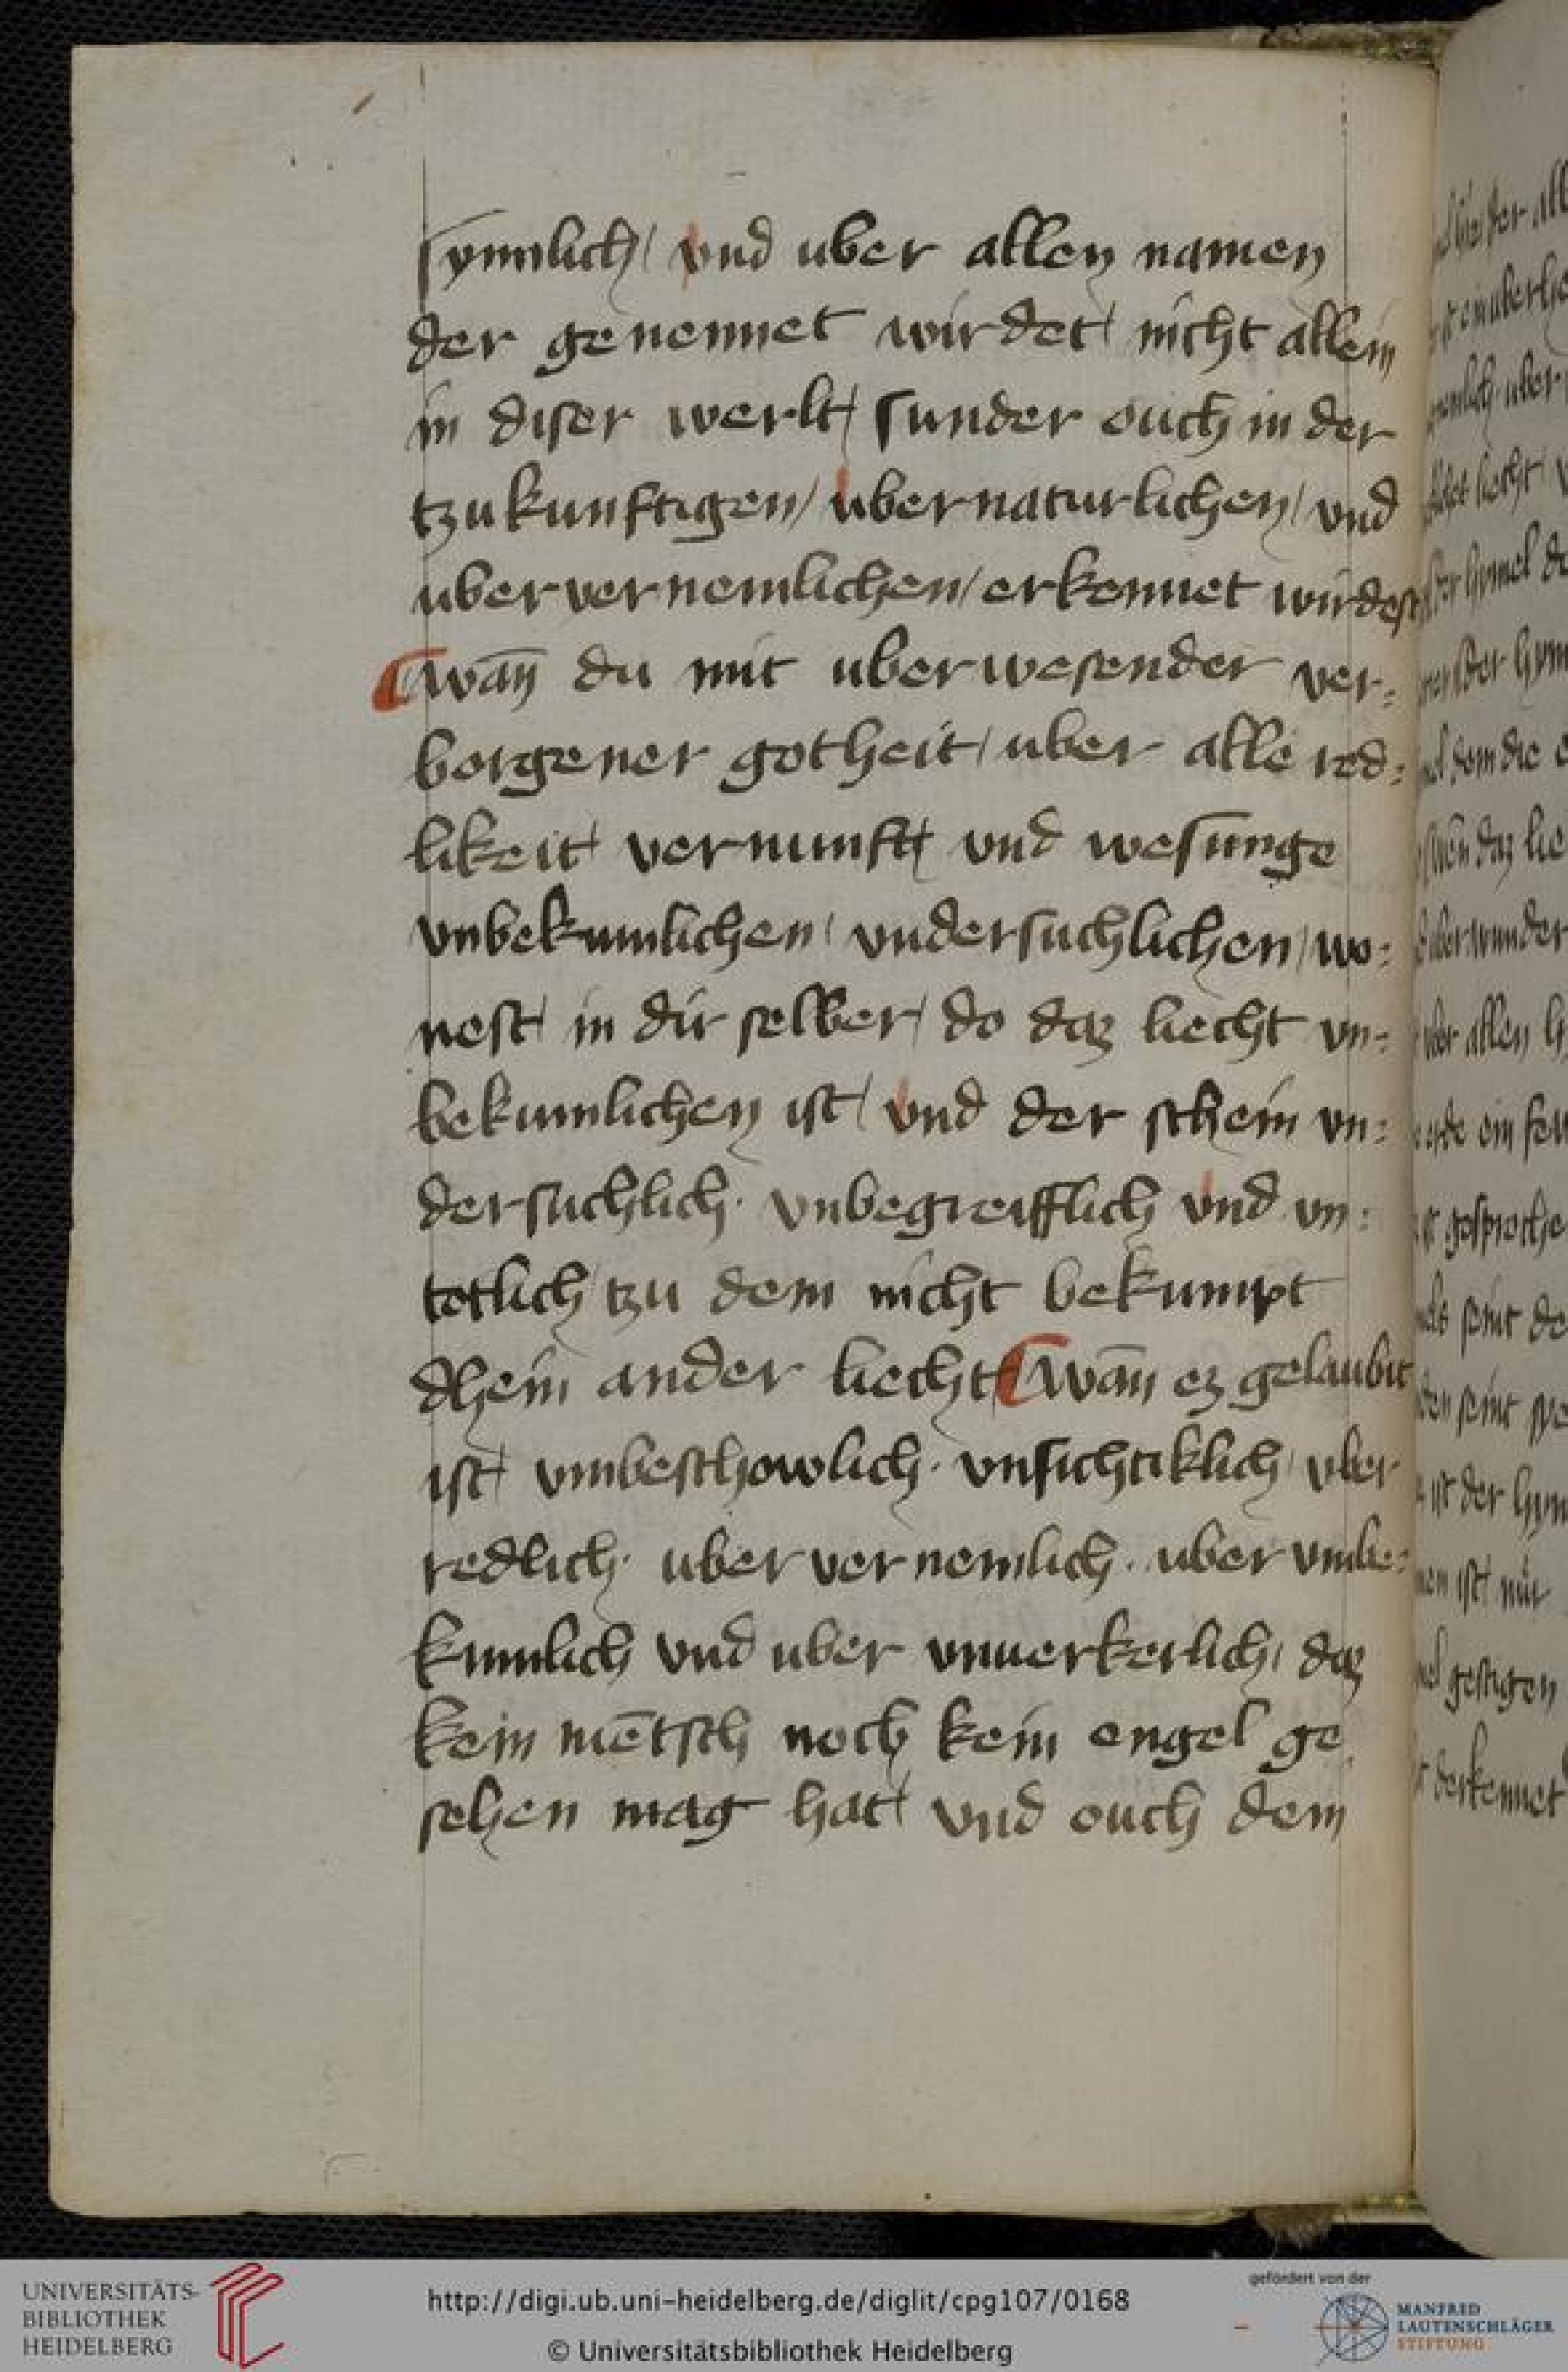 synnlich / vnd uber allen namen
der genennet wirdet / nicht allein
in diser werlt / sunder ouch in der
tzukunftigen / ubernaturlichen / vnd
uber vernemlichen / erkennet wirdest
wān du mit uberwesender ver=
borgener gotheit / uber alle red=
likeit / vernunft / vnd wesunge
vnbekumlichen / vndersuchlichen / wo=
nest / in dir selber / do daz liecht vn=
bekumlichen ist / vnd der schein vn=
dersuchlich · vnbegreifflich vnd vn=
totlich / tzu dem nicht bekumpt
dhein ander liecht / wān ez gelaubit
ist / vmbeschowlich · vnsichtiklich / vber
redlich · uber vernemlich · uber vmbe=
kumlich vnd uber vnuerkerlich / daz
kein mētsch noch kein engel ge
sehen mag hat / vnd ouch dem
UNIVERSITÄTS-
BIBLIOTHEK
HEIDELBERG
http://digi.ub.uni-heidelberg.de/diglit/cpg107/0168
© Universitätsbibliothek Heidelberg
gefördert von der
MANFRED
LAUTENSCHLÄGER
STIFTUNG